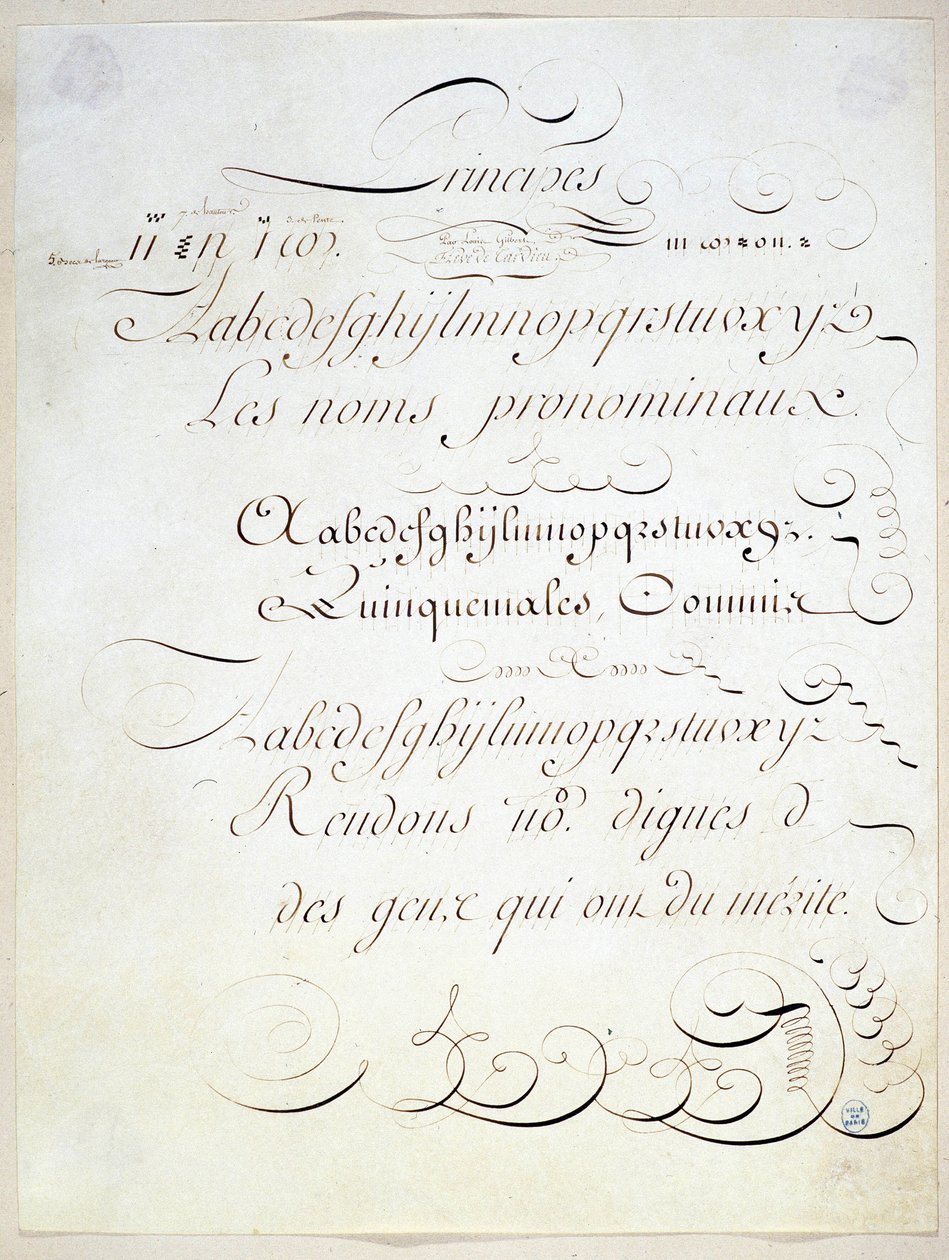 Principes
7. de hauteur. 3. de Pente.
5. de largeur
Par Louis Gilbert
Frere de Cardieu.
Aabcdefghijlmnopqrstuvxyz
Les noms pronominaux.
Aabcdefghijlmnopqrstuvxyz.
Quinquemales, Commir
Aabcdefghijlmnopqrstuvxyz
Rendons no.º dignes d
des gens qui ont du mérite.
VILLE
DE
PARIS